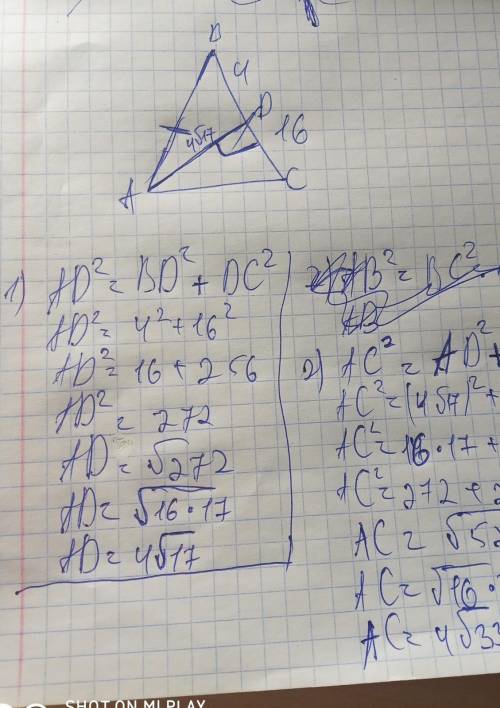 B
4
D
4√17
16
A
C
1) AD² = BD² + DC²
AD² = 4² + 16²
AD² = 16 + 256
AD² = 272
AD = √272
AD = √16·17
AD = 4√17
AB² = BC²
AB
2) AC² = AD² +
AC² = (4√7)² +
AC² = 16·17 +
AC² = 272 + 2
AC = √52
AC = √16·
AC = 4√33
SHOT ON MI PLAY